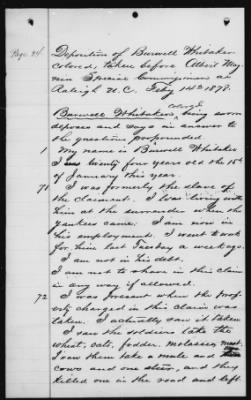 Page 24
Deposition of Burwell Whitaker
colored, taken before Albert Mag-
nin Special Commissioner at
Raleigh N.C. Feby 14th 1878.
colored
Burwell Whitaker, being sworn
deposes and says in answer to
the question propounded.
1 My name is Burwell Whitaker
I was twenty four years old the 15th
of January this year.
71 I was formerly the slave of
the claimant. I was living with
him at the surrender when the
yankees came. I am now in
his employment. I went to work
for him last Tuesday a week ago.
I am not in his debt.
I am not to share in this claim
in any way if allowed.
72 I was present when the prop-
erty charged in this claim was
taken. I actually saw it taken
I saw the soldiers take the
wheat, oats, fodder, molasses, meat.
I saw them take a mule and
cows and one steer, and they
killed one in the road and left